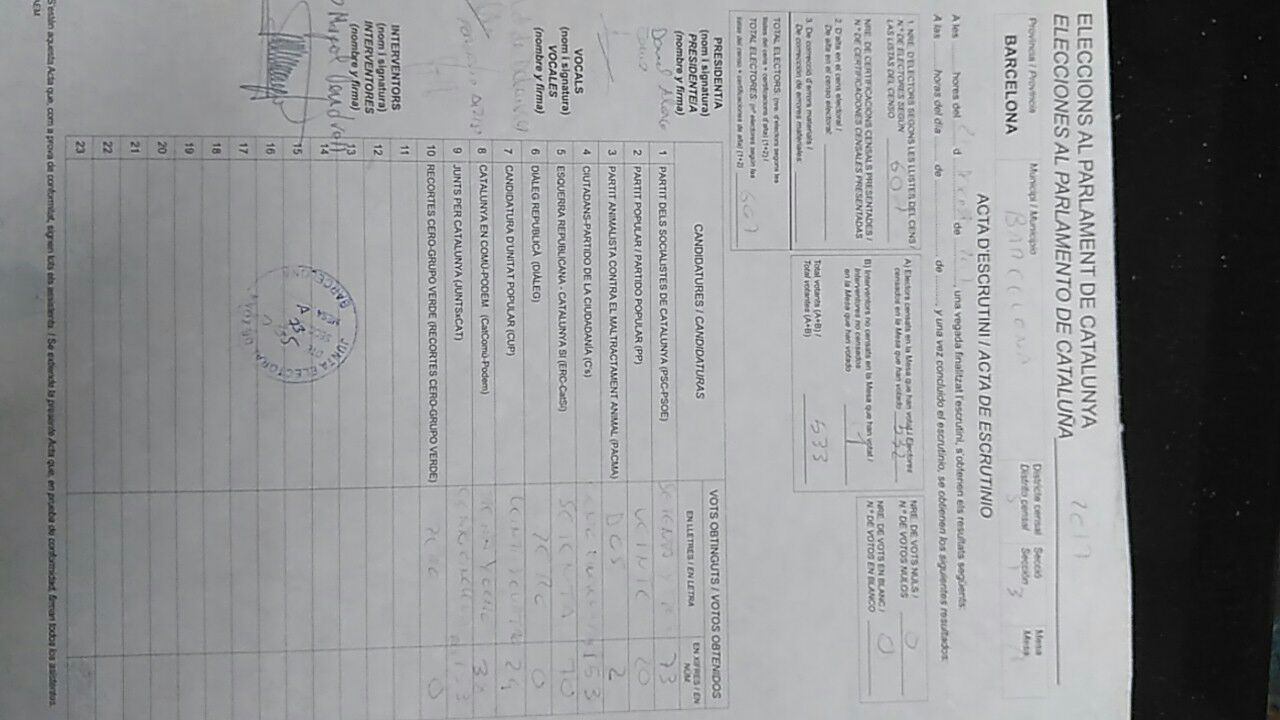 ELECCIONS AL PARLAMENT DE CATALUNYA 2017
ELECCIONES AL PARLAMENTO DE CATALUÑA
Província / Provincia
BARCELONA
Municipi / Municipio
BARCELONA
Districte censal
Distrito censal
Secció
Sección
Mesa
Mesa
ACTA D'ESCRUTINI / ACTA DE ESCRUTINIO
A les hores del d de , una vegada finalitzat l'escrutini, s'obtenen els resultats següents:
A las horas del día de de , y una vez concluido el escrutinio, se obtienen los siguientes resultados:
1. NRE. D'ELECTORS SEGONS LES LLISTES DEL CENS /
N.º DE ELECTORES SEGÚN
LAS LISTAS DEL CENSO
NRE. DE CERTIFICACIONS CENSALS PRESENTADES /
N.º DE CERTIFICACIONES CENSALES PRESENTADAS
2. D'alta en el cens electoral /
De alta en el censo electoral:
3. De correcció d'errors materials /
De corrección de errores materiales:
TOTAL ELECTORS: (nre. d'electors segons les
llistes del cens + certificacions d'alta) (1+2) /
TOTAL ELECTORES: (nº electores según las
listas del censo + certificaciones de alta) (1+2)
A) Electors censats en la Mesa que han votat / Electores
censados en la Mesa que han votado 532
B) Interventors no censats en la Mesa que han votat /
Interventores no censados
en la Mesa que han votado 1
Total votants (A+B) /
Total votantes (A+B) 533
NRE. DE VOTS NULS /
N.º DE VOTOS NULOS 0
NRE. DE VOTS EN BLANC /
N.º DE VOTOS EN BLANCO 0
CANDIDATURES / CANDIDATURAS
VOTS OBTINGUTS / VOTOS OBTENIDOS
EN LLETRES / EN LETRA
EN XIFRES / EN NÚM
1 PARTIT DELS SOCIALISTES DE CATALUNYA (PSC-PSOE) 73
2 PARTIT POPULAR / PARTIDO POPULAR (PP) VEINTE 20
3 PARTIT ANIMALISTA CONTRA EL MALTRACTAMENT ANIMAL (PACMA) DOS 2
4 CIUTADANS-PARTIDO DE LA CIUDADANÍA (C's) 153
5 ESQUERRA REPUBLICANA - CATALUNYA SÍ (ERC-CatSí) SETENTA 70
6 DIÀLEG REPUBLICÀ (DIÀLEG) ZERO 0
7 CANDIDATURA D'UNITAT POPULAR (CUP) 24
8 CATALUNYA EN COMÚ-PODEM (CatComú-Podem)
9 JUNTS PER CATALUNYA (JUNTSxCAT)
10 RECORTES CERO-GRUPO VERDE (RECORTES CERO-GRUPO VERDE) 0
11
12
13
14
15
16
17
18
19
20
21
22
23
PRESIDENTIA
(nom i signatura)
PRESIDENTE/A
(nombre y firma)
VOCALS
(nom i signatura)
VOCALES
(nombre y firma)
INTERVENTORS
(nom i signatura)
INTERVENTORES
(nombre y firma)
JUNTA ELECTORAL
BARCELONA
S'estén aquesta Acta que, com a prova de conformitat, signen tots els assistents. / Se extiende la presente Acta que, en prueba de conformidad, firman todos los asistentes.